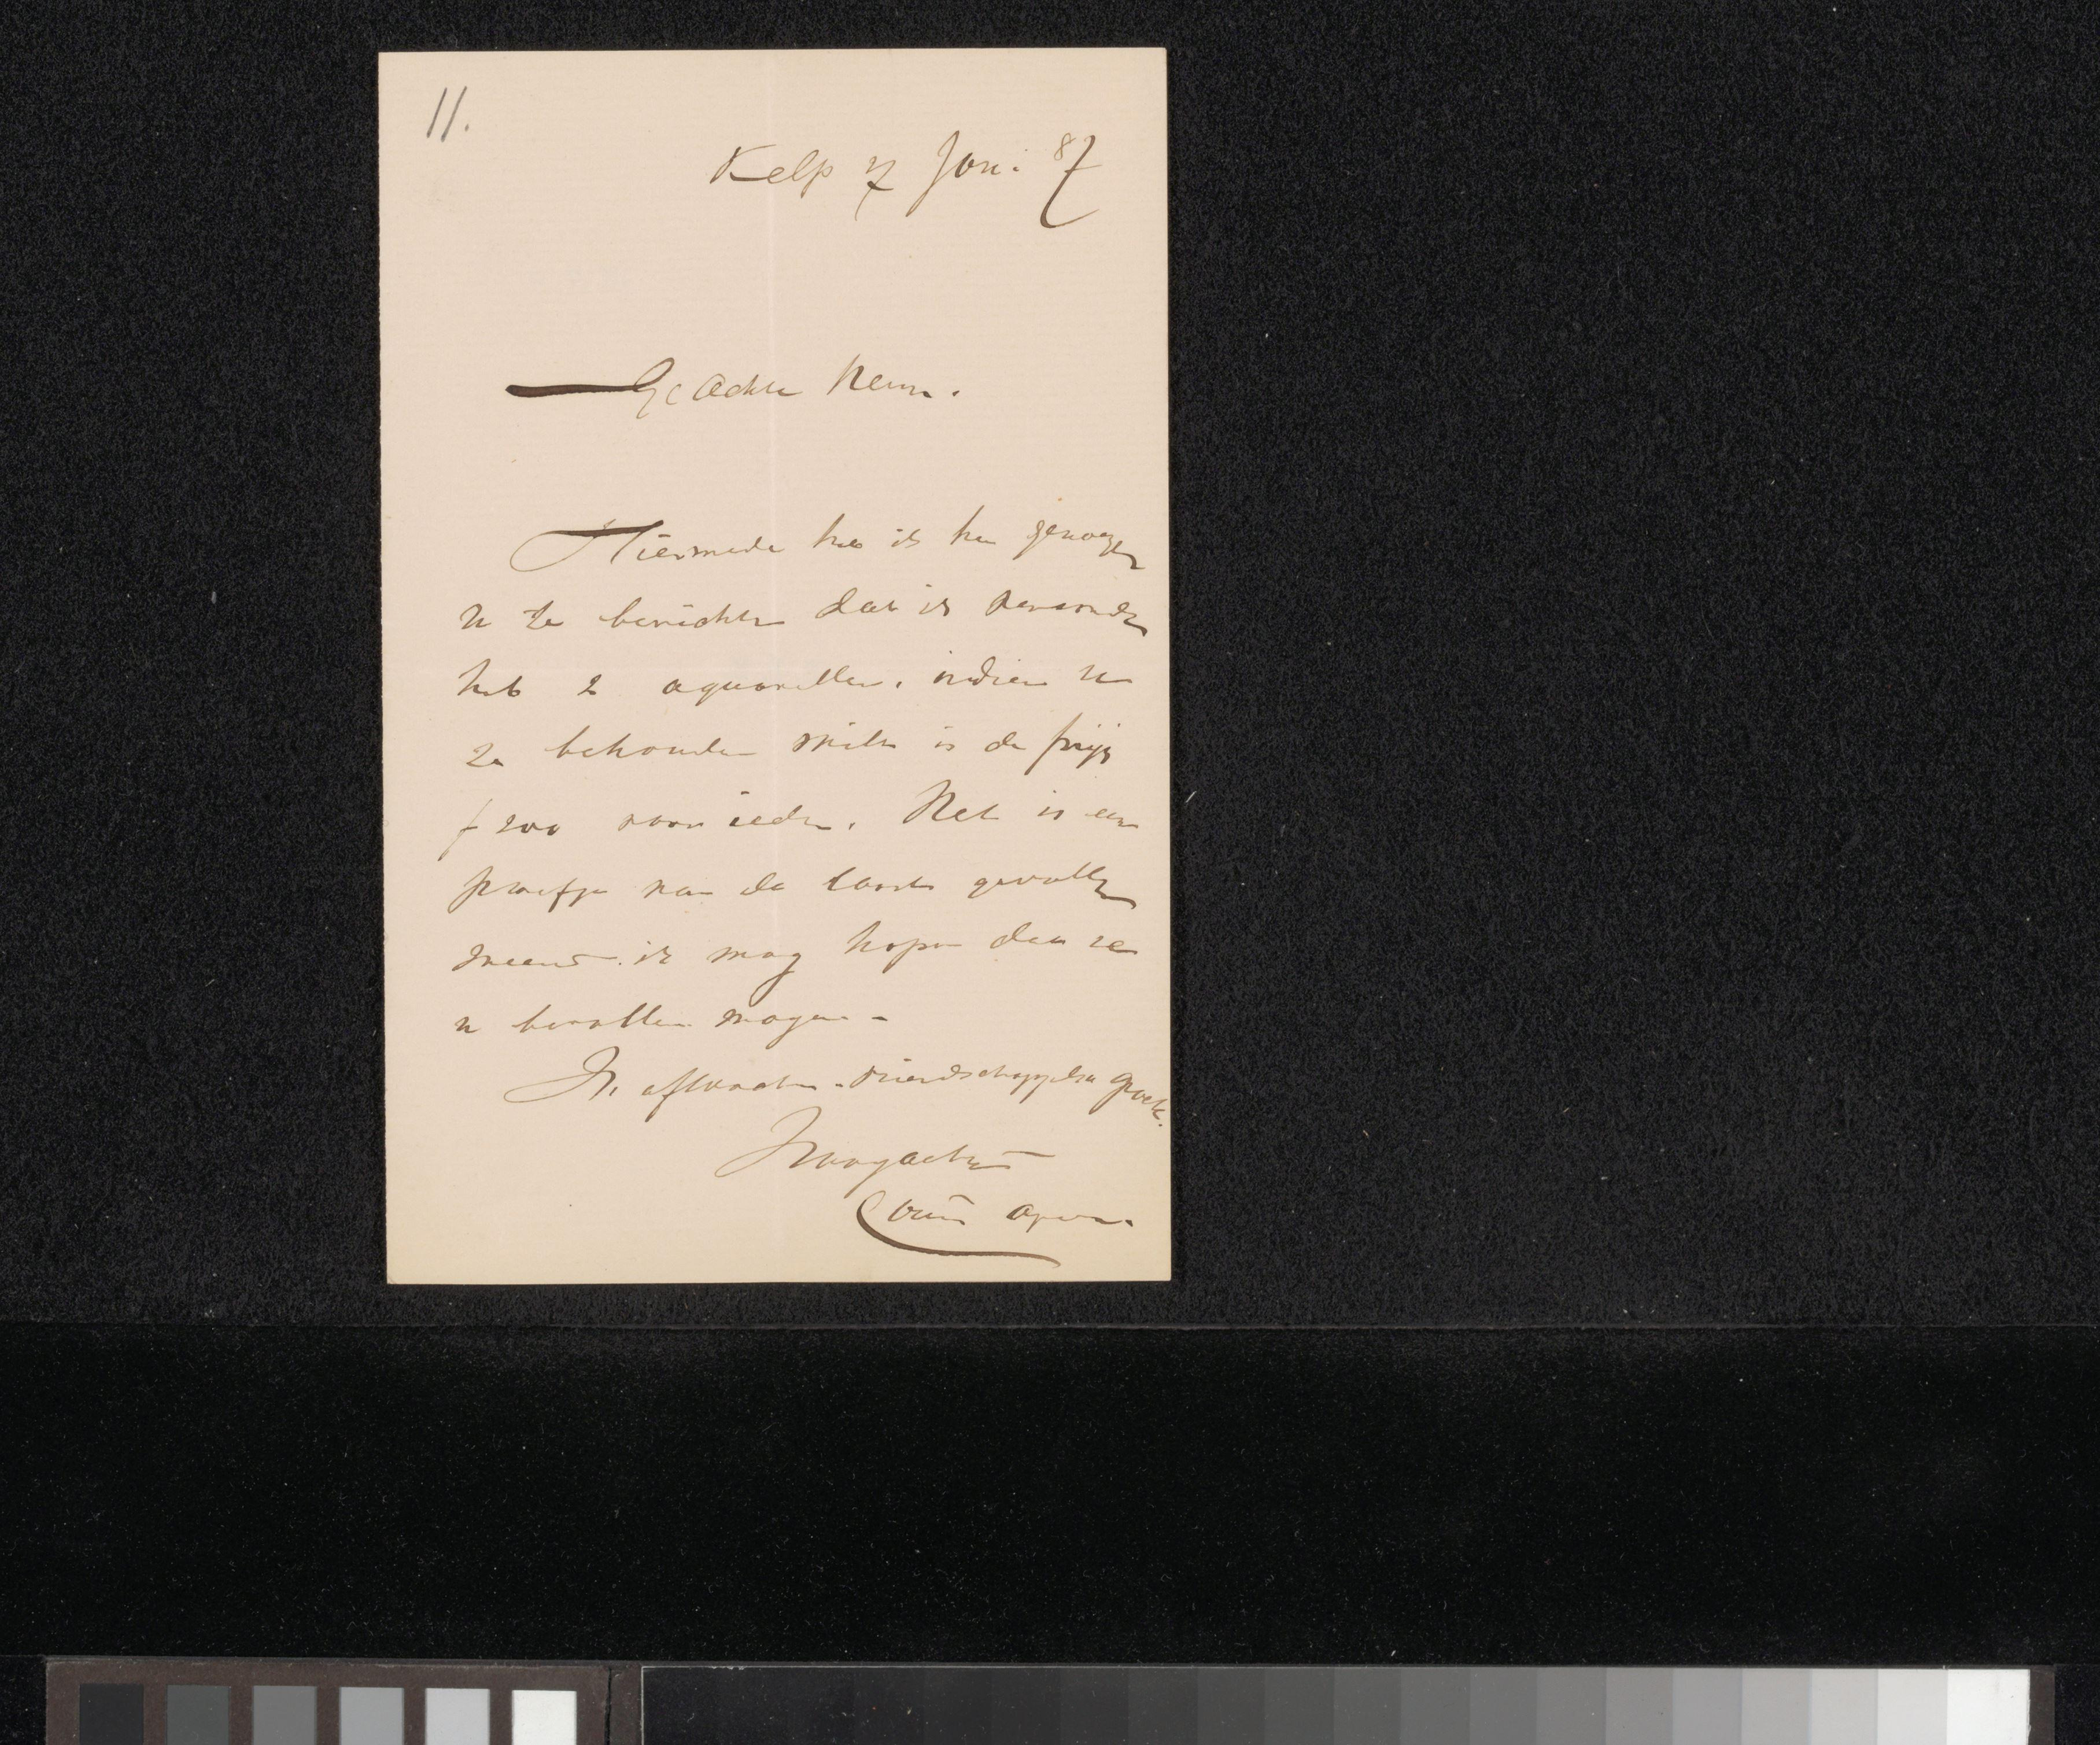 11.
Velp 7 Juni 87
Geachte Heer.
Hiermede heb ik het genoegen
u te berichten dat ik verzonden
heb 2 aquarellen. indien u
ze behouden wilt is de prijs
f 200 voor ieder. Het is een
proefje van de laatst gevallen
sneeuw. ik mag hopen dat ze
u bevallen mogen -
In afwachten. vriendschappelijke groete.
Hoogachtend
Louis Apol.